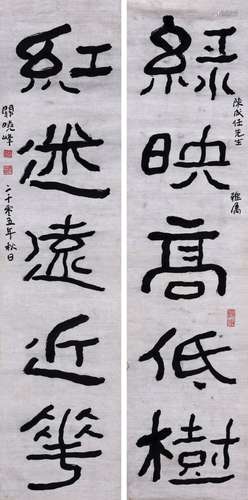 綠映高低樹
陳成任先生
雅屬
紅迷遠近花
關曉峰
二千零五年秋日